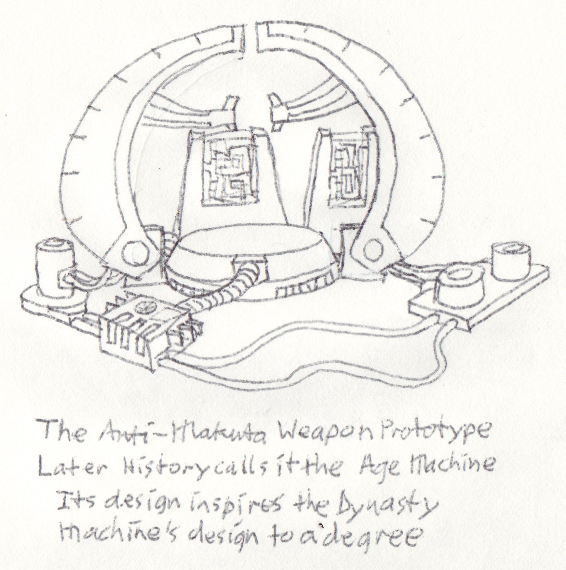 The Anti-Makuta Weapon Prototype
Later History calls it the Age Machine
Its design inspires the Dynasty
Machine's design to a degree